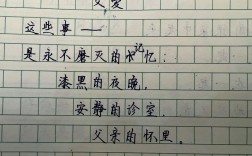 父爱
这些事——
是永不磨灭的记忆:
漆黑的夜晚,
安静的诊室,
父亲的怀里。